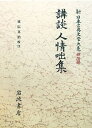 新日本古典文学大系 明治編
講談人情咄集
延広真治校注
岩波書店